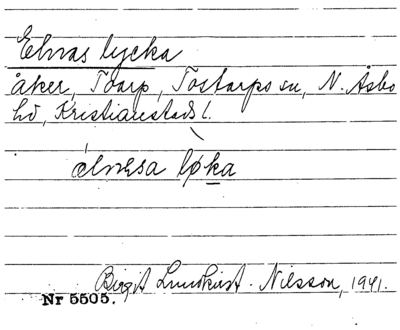 Elnas lycka
åker, Toarp, Tostarps sn, N. Åsbo
hd, Kristianstads l.
Birgit Lundkvist-Nilsson, 1941.
Nr 5505.